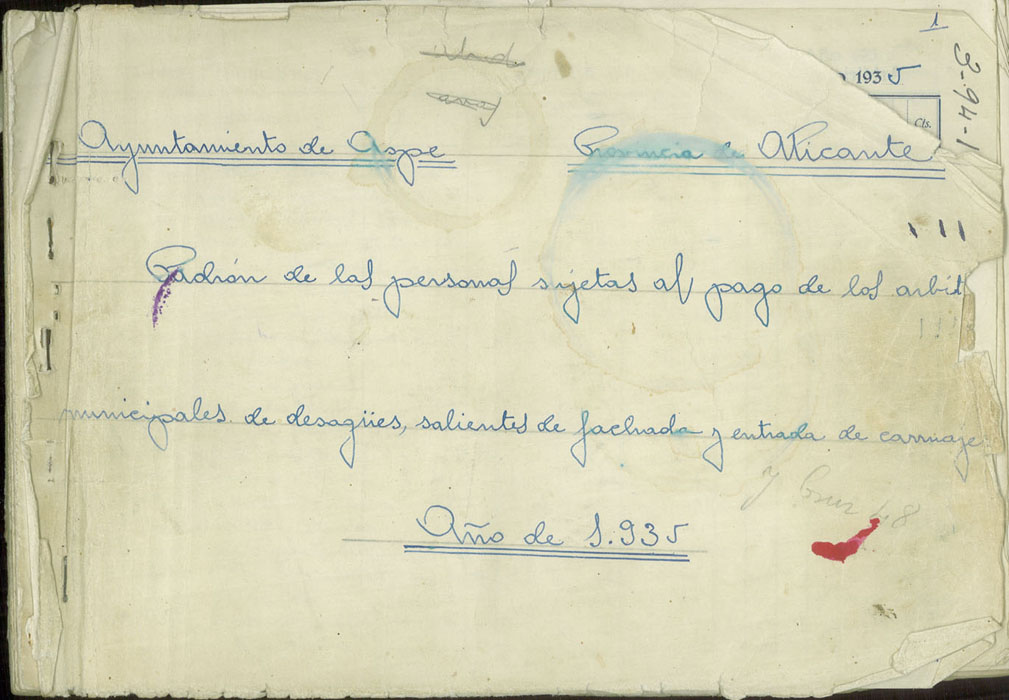 1
193 5
3-94-1
Cts.
Ayuntamiento de Aspe Provincia de Alicante
Padrón de las personas sujetas al pago de los arbit
municipales de desagües, salientes de fachada y entrada de carruaje
y
48
Año de 1.935